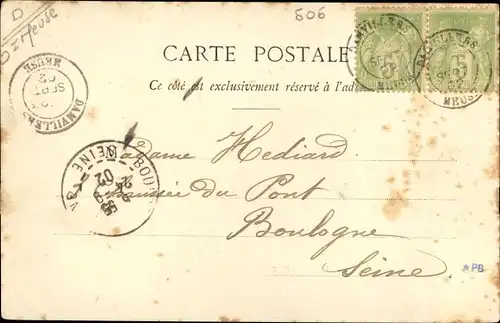 D
Meuse
506
CARTE POSTALE
Ce côté est exclusivement réservé à l'ad
DAMVILLERS
SEPT
02
MEUSE
DAMVILLERS
MEUSE
DAMVILLERS
MEUSE
5
5
BOU
SEINE
02
Madame Hediard
du Pont
Boulogne
Seine
*PB